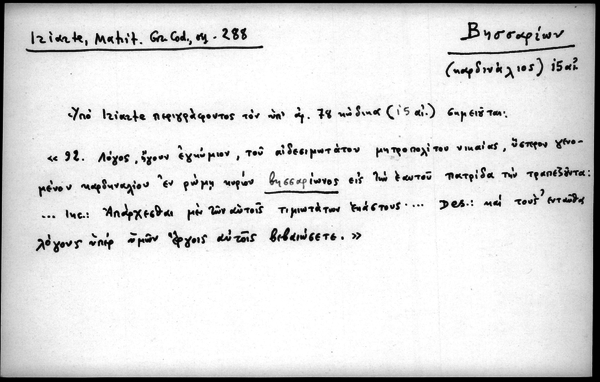 Iriarte, Matrit. Gr. Cod., σ. 288
Βησσαρίων
(καρδινάλιος) ις αἰ.
Ὑπὸ Iriarte περιγράφοντος τὸν ὑπ' ἀρ. 78 κώδικα (ις αἰ.) σημειοῦται:
« 92. Λόγος, ἤγουν ἐγκώμιον, τοῦ αἰδεσιμωτάτου μητροπολίτου νικαίας, ὕστερον γενο-
μένου καρδηναλίου ἐν ρώμῃ κυρίου βησσαρίωνος εἰς τὴν ἑαυτοῦ πατρίδα τὴν τραπεζοῦντα:
... Inc.: Ἀπάρχεσθαι μὲν τῶν αὐτοῖς τιμιωτάτων ἑκάστους.... Des.: καὶ τοὺς ἐνταῦθα
λόγους ὑπὲρ ὑμῶν ἔργοις αὐτοῖς βεβαιώσετε. »